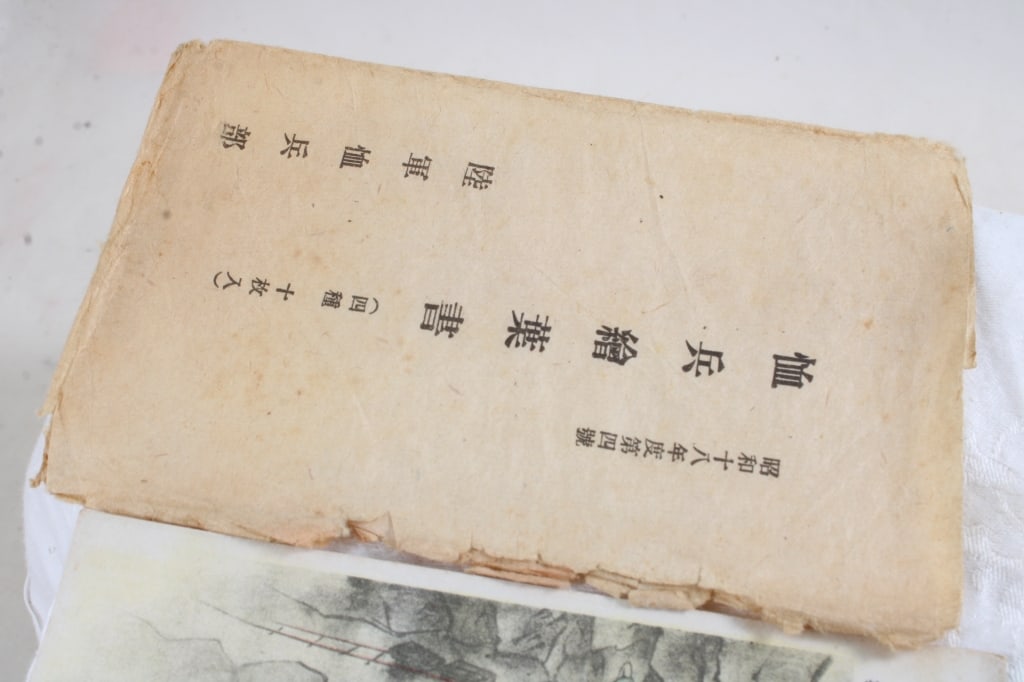 昭和十八年度第四號
恤兵繪葉書
（四種 十枚入）
陸軍恤兵部